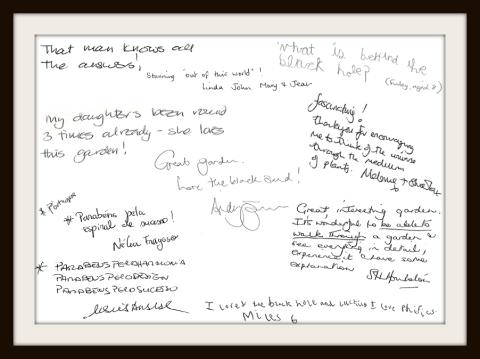 That man knows all
the answers!
Stunning "out of this world"!
Linda John Mary & Jean
What is behind the
black hole?
my daughter's been round
3 times already - she loves
this garden!
Great garden.
Love the black sand!
fascinating!
thankyou for encouraging
me to think of the universe
through the medium
of plants.
* Portugal
* Parabéns pela
espiral de sucesso!
Nélia Fragoso
* PARABENS PELA HARMONIA
PARABENS PELO DESIGN
PARABENS PELO SUCESSO
Great interesting garden.
It's wonderful to be able to
walk through a garden &
see everything in detail,
experience it & have some
explanation
I loved the black hole and I love
Miles 6